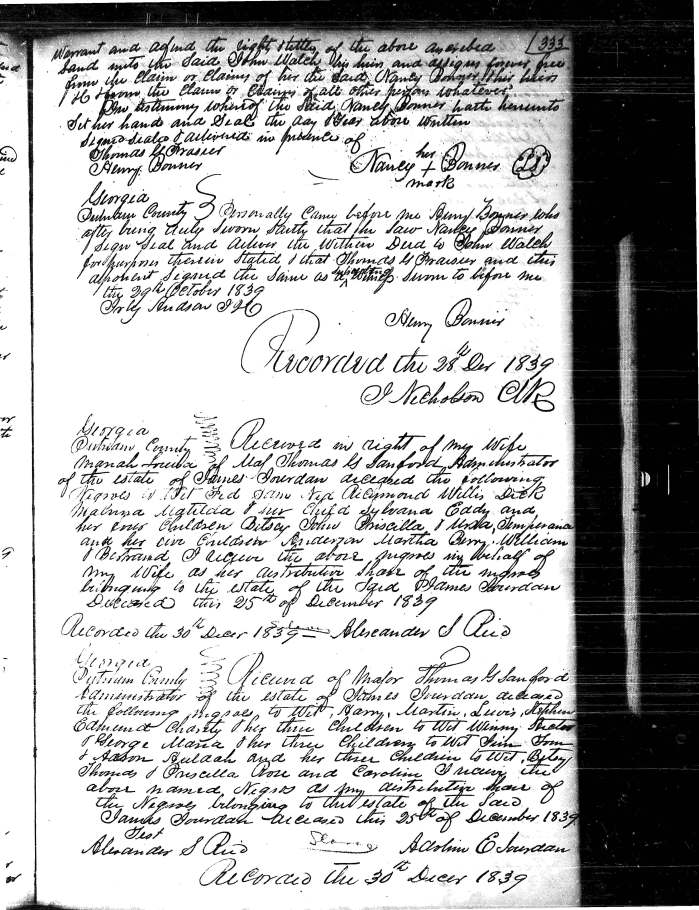 333
Warrant and defend the right & titles of the above described
Land unto the Said John Walch his heirs and assigns forever free
from the claim or claims of her the Said Nancy Bonner & her heirs
& from the claim or claims of all other persons whatever
In testimony whereof the Said Nancy Bonner hath hereunto
Set her hand and Seal the day & year above written
Signed Sealed & delivered in presence of
Thomas G Frasier
Henry Bonner
Nancy her + mark Bonner
Georgia
Putnam County Personally Came before me Henry Bonner who
after being duly Sworn that he Saw Nancy Bonner
Sign Seal and deliver the within Deed to John Walch
for purposes therein Stated & that Thomas G Frasier and this
deponent Signed the Same as Sworn to before me
the 29th October 1839
Hudson
Henry Bonner
Recorded the 28th Der 1839
J Nicholson Clk
Georgia
Putnam County Received in right of my Wife
Mariah of Maj Thomas G Sanford Administrator
of the estate of James Jourdan deceased the following
Negroes to Wit Fed Sam Ned Richmond Willis Dick
Malvina Matilda & her Child Sylvana Eddy and
her four Children Betsey John Priscilla & Temperana
and her five Children Anderson Martha Berry William
& Bertrand I receive the above negroes in behalf of
my Wife as her distributive Share of the negroes
belonging to the estate of the Said James Jourdan
Deceased this 25th of December 1839
Recorded the 30th Decer 1839 Alexander S Reid
Georgia
Putnam County Received of Major Thomas G Sanford
Administrator of the estate of James Jourdan deceased
the following negroes to Wit, Harry, Martin, Lewis, Stephen
Edmund Charity & her three Children to Wit Winny
& George Maria & her three Children to Wit Jim Tom
& Aaron Huldah and her three Children to Wit, Betsy
Thomas & Priscilla Rose and Caroline I receive the
above named Negros as my distributive Share of
the Negroes belonging to the estate of the Said
James Jourdan deceased this 25th of December 1839
Test
Alexander S Reid Adoline E Jourdan
Recorded the 30th Decer 1839